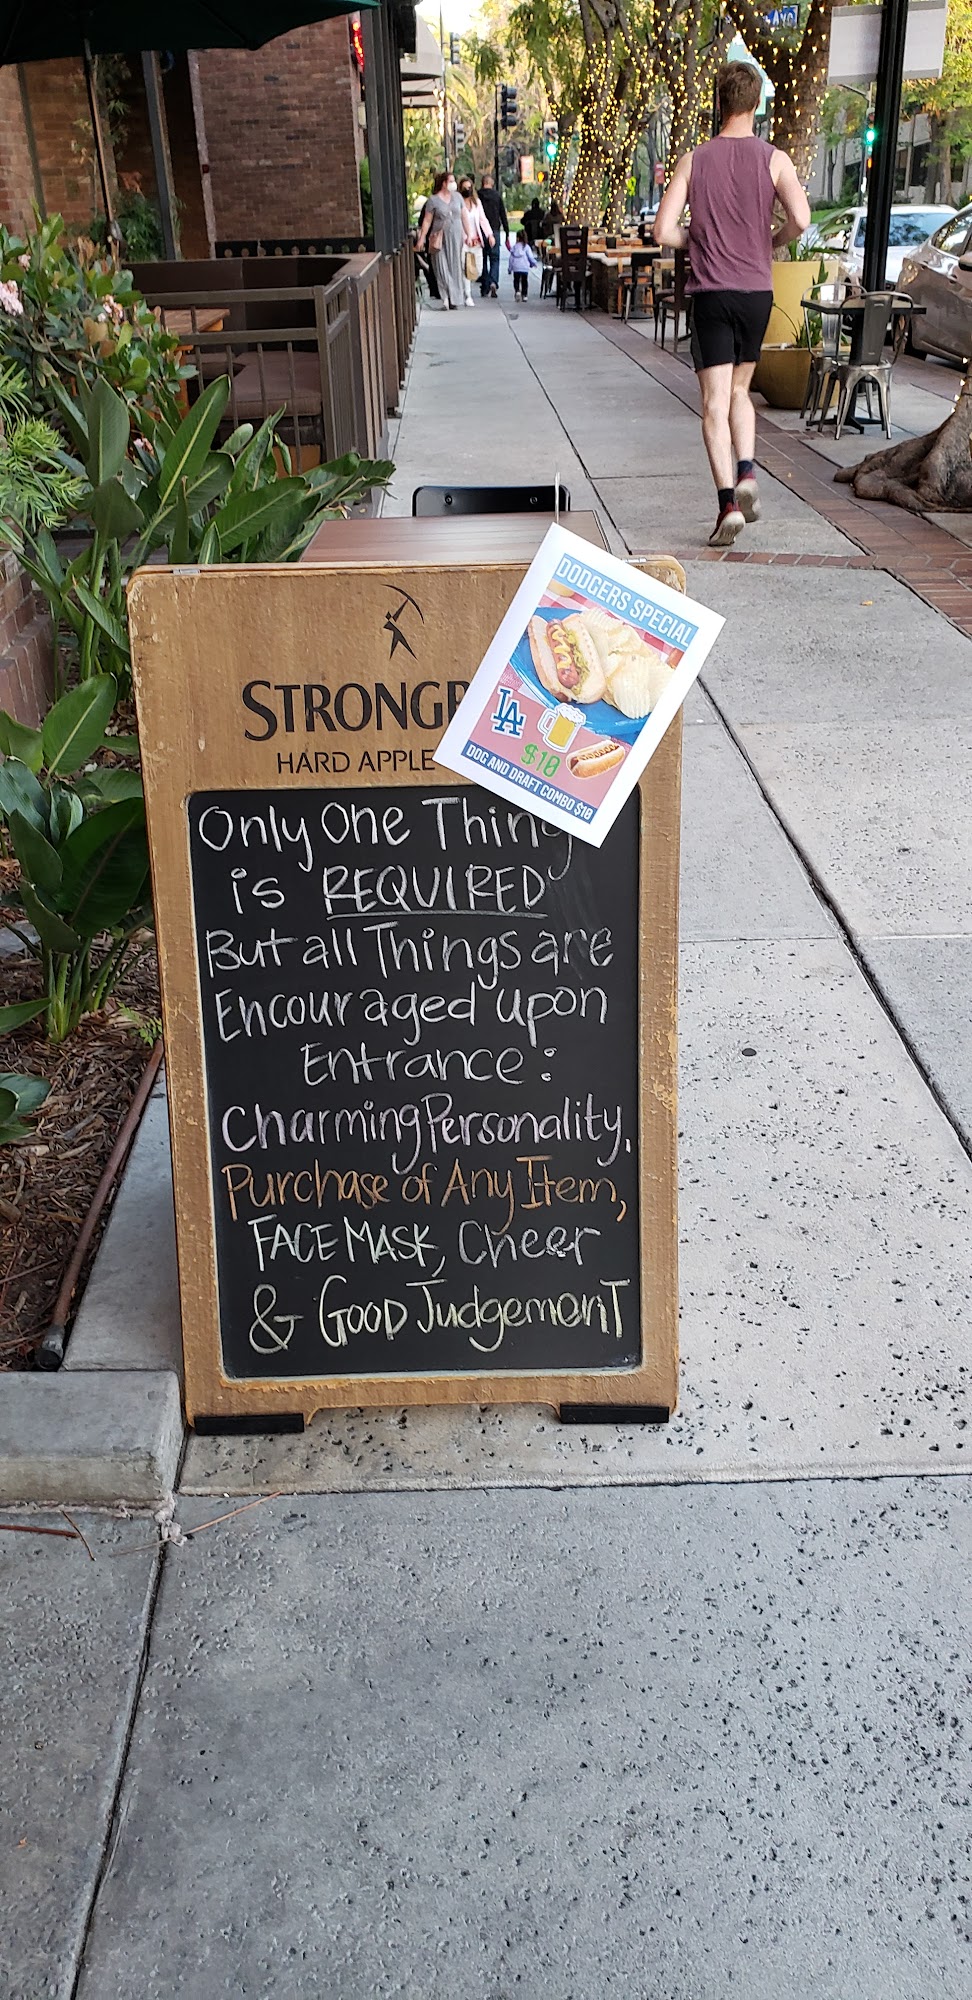 STRONGB
HARD APPLE
DODGERS SPECIAL
LA
$10
DOG AND DRAFT COMBO $10
Only One Thing
is REQUIRED
But all Things are
Encouraged upon
Entrance:
Charming Personality,
Purchase of Any Item,
FACE MASK, Cheer
& GOOD JudgemenT